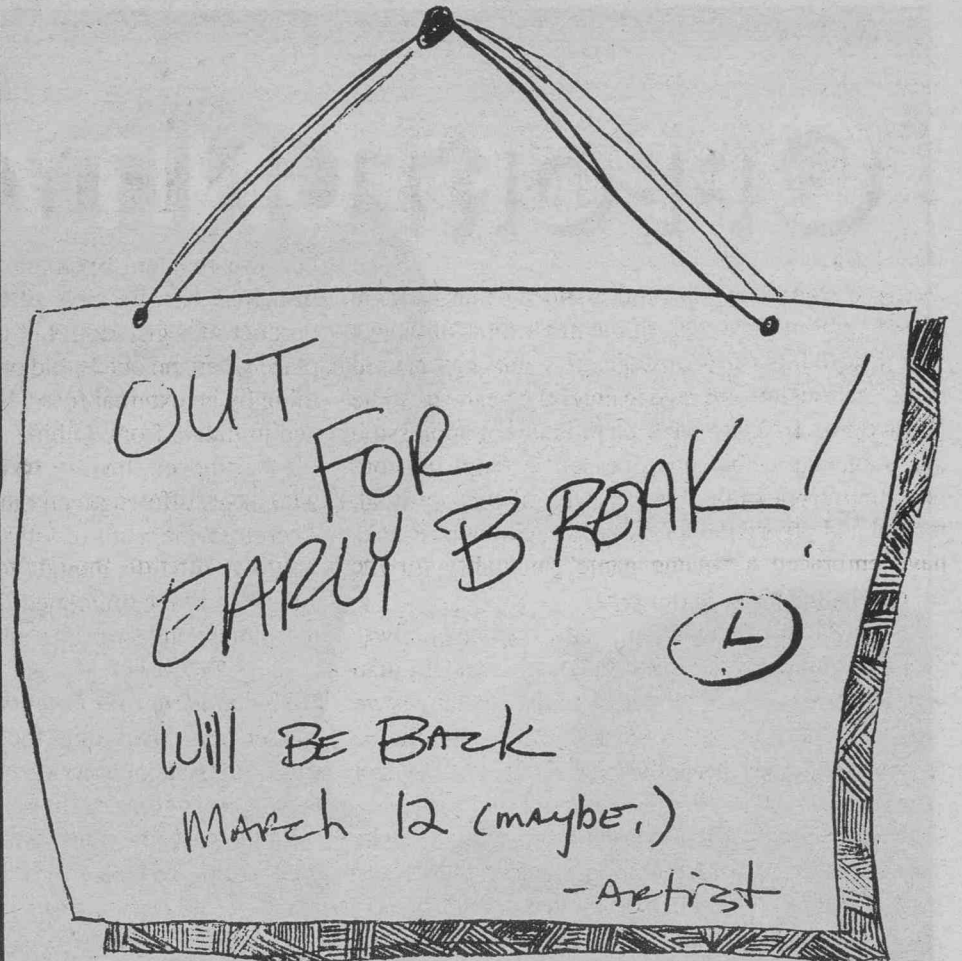 OUT
FOR
EARLY BREAK!
Will BE BACK
MARCH 12 (MAYBE.)
-Artist